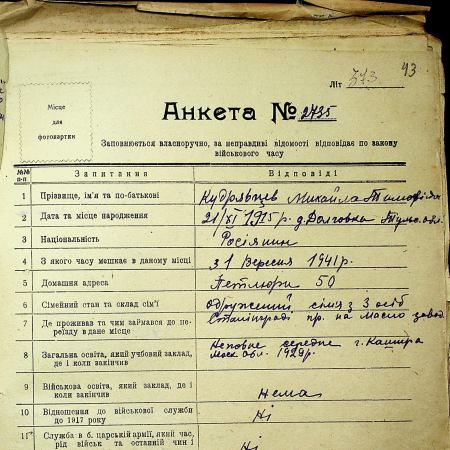 Літ 373 93
Місце
для
фотокартки
Анкета № 2735
Заповнюється власноручно, за неправдиві відомості відповідає по закону
військового часу
№№ п-п Запитання Відповіді
1 Прізвище, ім'я та по-батькові Кудрявцев Михайло
2 Дата та місце народження 21/XI 1915 р. д. Долговка
3 Національність Росіянин
4 З якого часу мешкає в даному місці з 1 Вересня 1941 р.
5 Домашня адреса Петлюри 50
6 Сімейний стан та склад сім'ї одружений сімя з 3 осіб
7 Де проживав та чим займався до пе-
реїзду в дане місце Сталінграді пр. на Масло завод
8 Загальна освіта, який учбовий заклад,
де і коли закінчив Неповне середне г. Кашира
Моск обл. 1929 р.
9 Військова освіта, який заклад, де і
коли закінчив Нема
10 Відношення до військової служби
до 1917 року Ні
11 Служба в б. царській армії, який час,
рід військ та останній чин і Ні